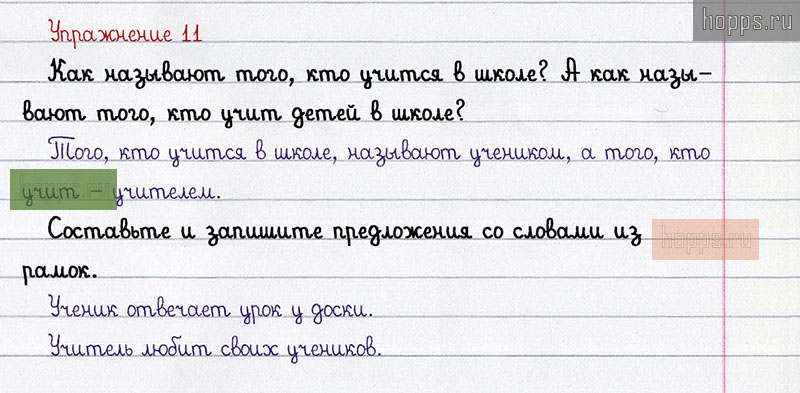 hopps.ru
Упражнение 11
Как называют того, кто учится в школе? А как назы-
вают того, кто учит детей в школе?
Того, кто учится в школе, называют учеником, а того, кто
учит – учителем.
Составьте и запишите предложения со словами из
hopps.ru
рамок.
Ученик отвечает урок у доски.
Учитель любит своих учеников.